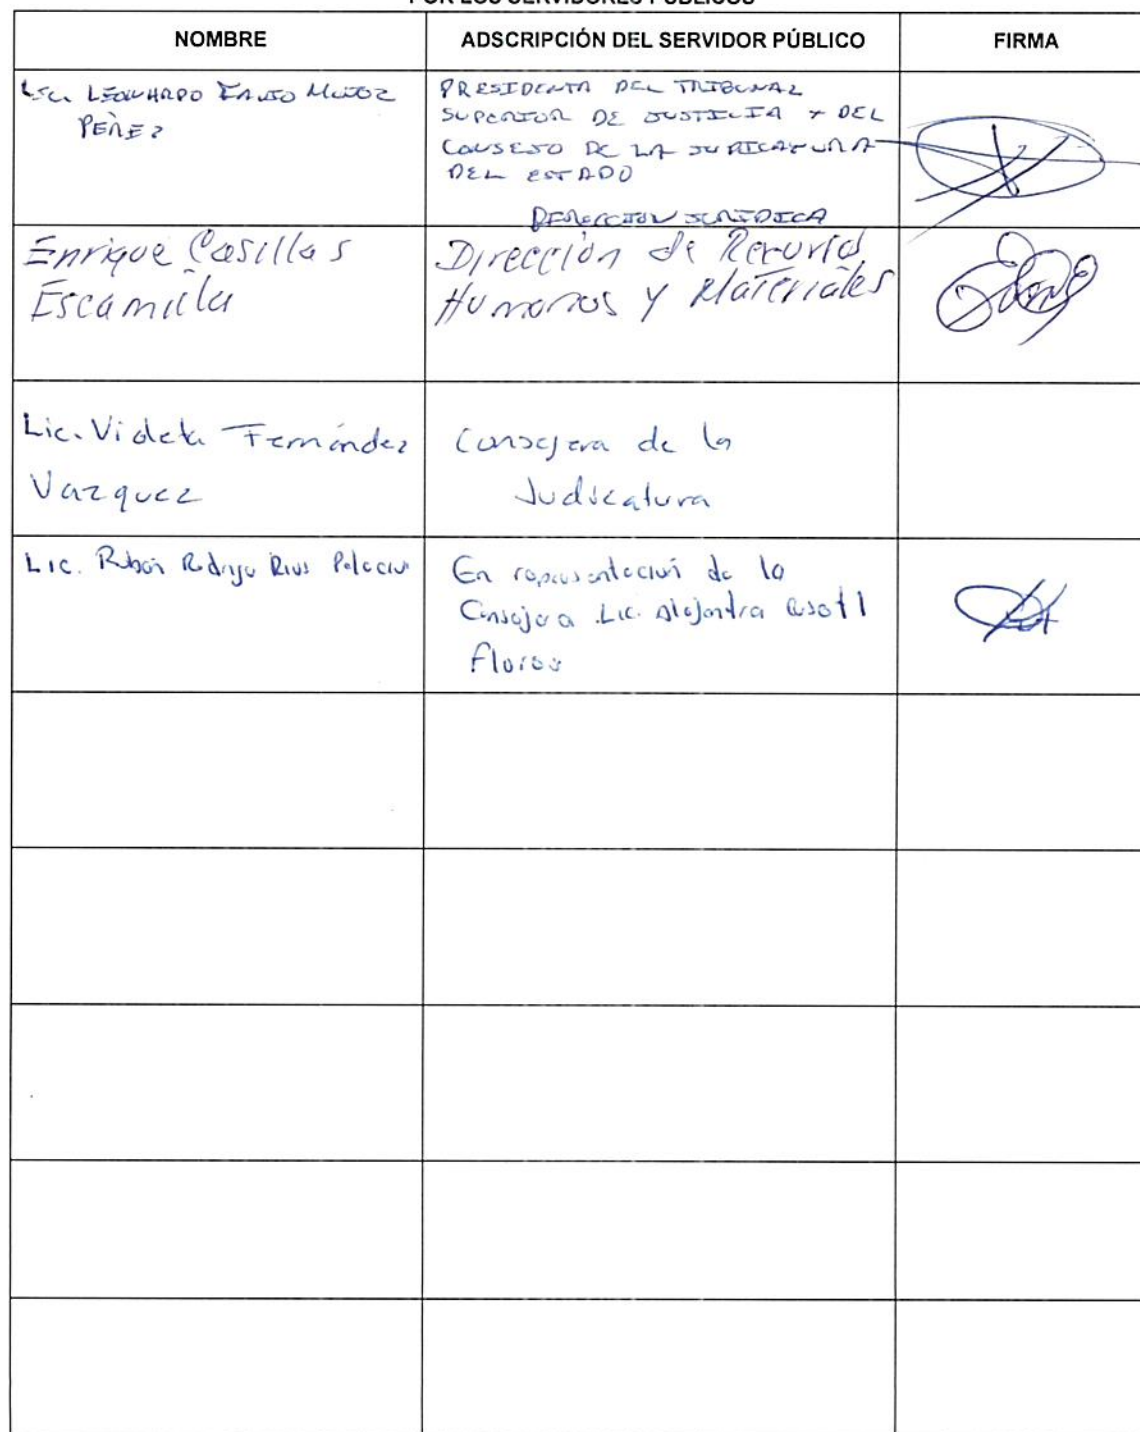 POR LOS SERVIDORES PÚBLICOS
NOMBRE ADSCRIPCIÓN DEL SERVIDOR PÚBLICO FIRMA
LIC. LEONARDO MUÑOZ
PÉREZ
PRESIDENTA DEL TRIBUNAL
SUPERIOR DE JUSTICIA Y DEL
CONSEJO DE LA JUDICATURA
DEL ESTADO
DIRECCION JURIDICA
Enrique Casillas
Escamilla
Dirección de Recursos
Humanos y Materiales
Lic. Violeta Fernández
Vazquez
Consejera de la
Judicatura
Lic. Rubén Rodrigo Rios Palacios
En representación de la
Consejera Lic. Alejandra
Flores